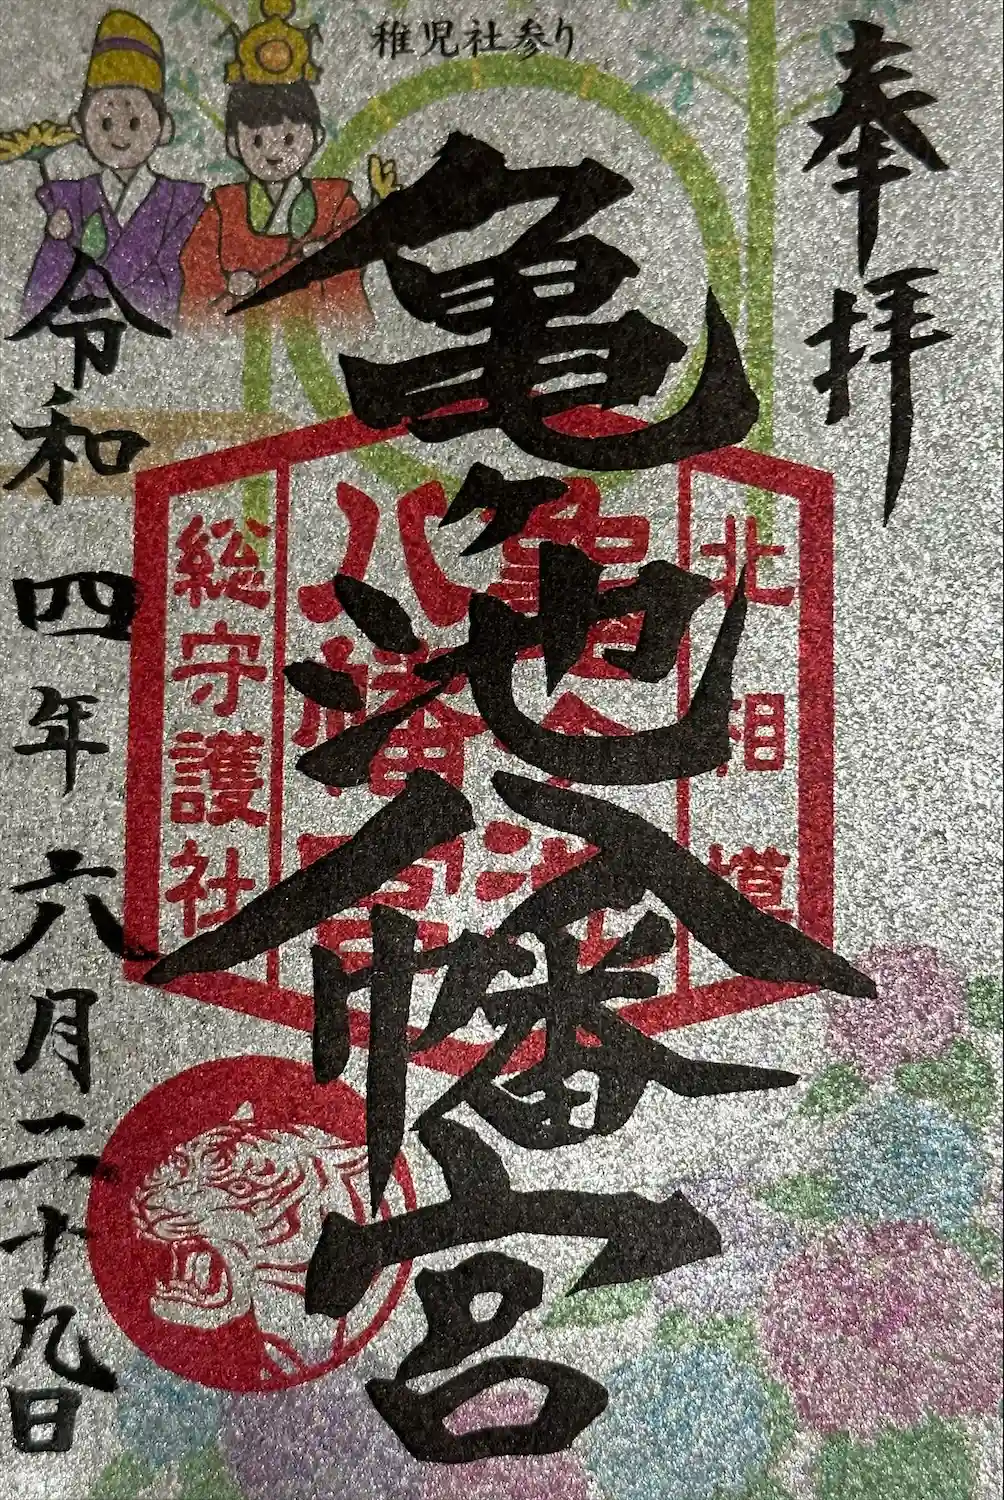 奉拝
稚児社参り
亀ヶ池八幡宮
北相模
亀ヶ池
八幡宮
総守護社
令和四年六月二十九日